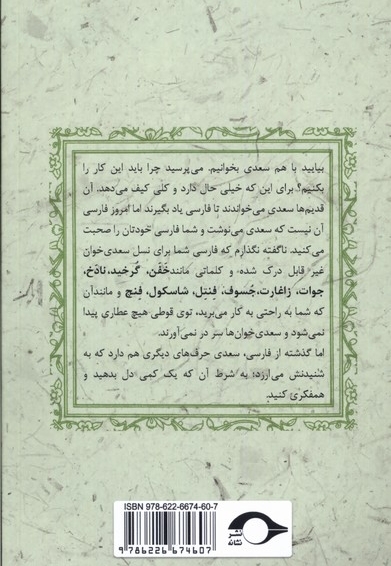 بیایید با هم سعدی بخوانیم. می‌پرسید چرا باید این کار را
بکنیم؟ برای این که خیلی حال دارد و کلی کیف می‌دهد. آن
قدیم‌ها سعدی می‌خواندند تا فارسی یاد بگیرند اما امروز فارسی
آن نیست که سعدی می‌نوشت و شما فارسی خودتان را صحبت
می‌کنید. ناگفته نگذارم که فارسی شما برای نسل سعدی‌خوان
غیر قابل درک شده و کلماتی مانند خَفَن، گُرخید، نادَخ،
جوات، زاغارت، جُسوف، فنتِل، شاسکول، فِنچ و مانند آن
که شما به راحتی به کار می‌برید، توی قوطی هیچ عطاری پیدا
نمی‌شود و سعدی‌خوان‌ها سر در نمی‌آورند.
اما گذشته از فارسی، سعدی حرف‌های دیگری هم دارد که به
شنیدنش می‌ارزد؛ به شرط آن که یک کمی دل بدهید و
همفکری کنید.
ISBN 978-622-6674-60-7
9 786226 674607
نشر
نشانه